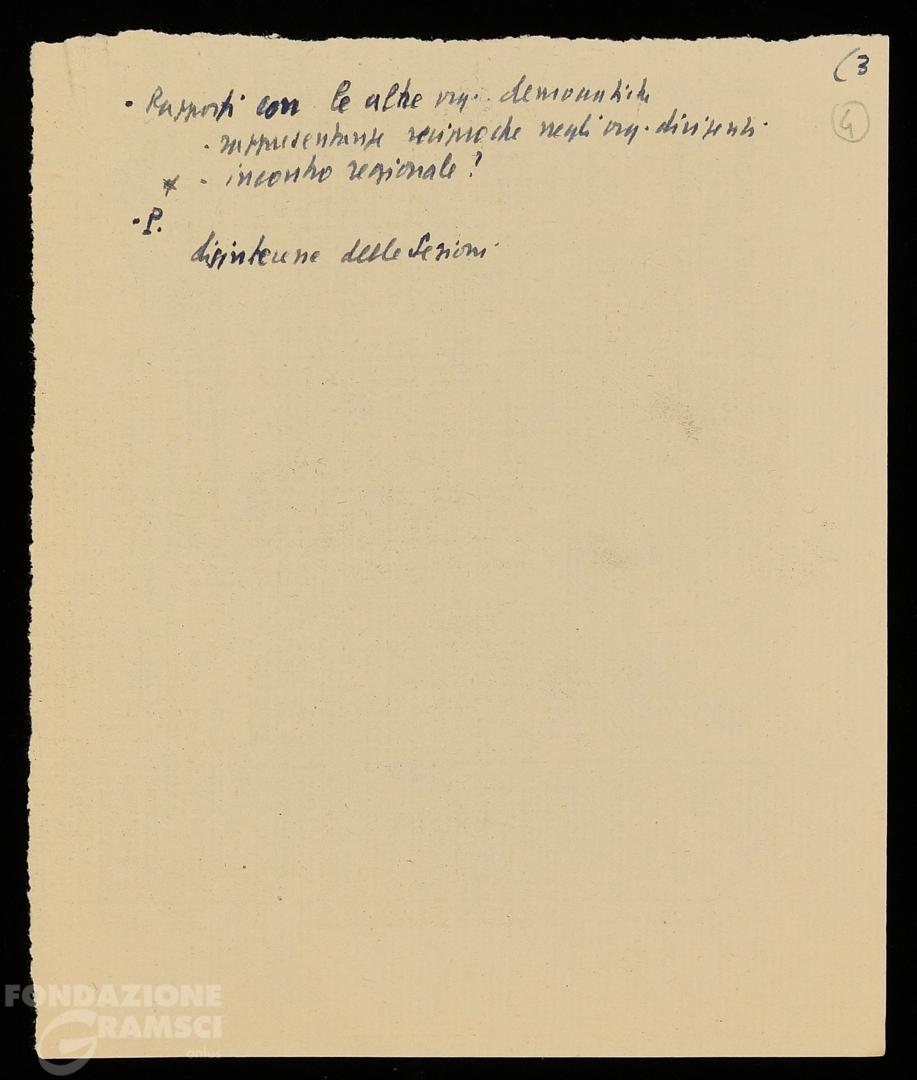 (3
4
· Rapporti con le altre org. democratiche
· rappresentanze reciproche negli org. dirigenti.
x · incontro regionale?
· P.
delle Sezioni
FONDAZIONE
GRAMSCI
onlus